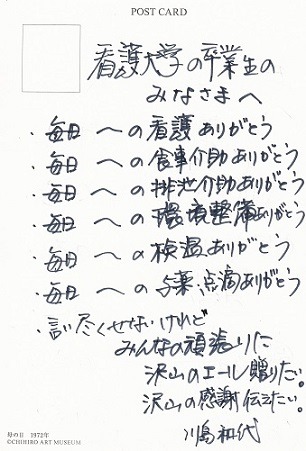 POST CARD
看護大学の卒業生の
みなさまへ
・毎日への看護ありがとう
・毎日への食事介助ありがとう
・毎日への排泄介助ありがとう
・毎日への環境整備ありがとう
・毎日への検温ありがとう
・毎日への与薬、点滴ありがとう
・言い尽くせないけれど
みんなの頑張りに
沢山のエール贈りたい。
沢山の感謝伝えたい。
川島和代
母の日 1972年
©CHIHIRO ART MUSEUM